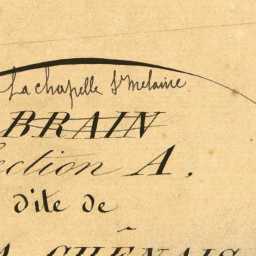 La chapelle St Melaine
BRAIN
ection A.
dite de
A CHÊNAIS